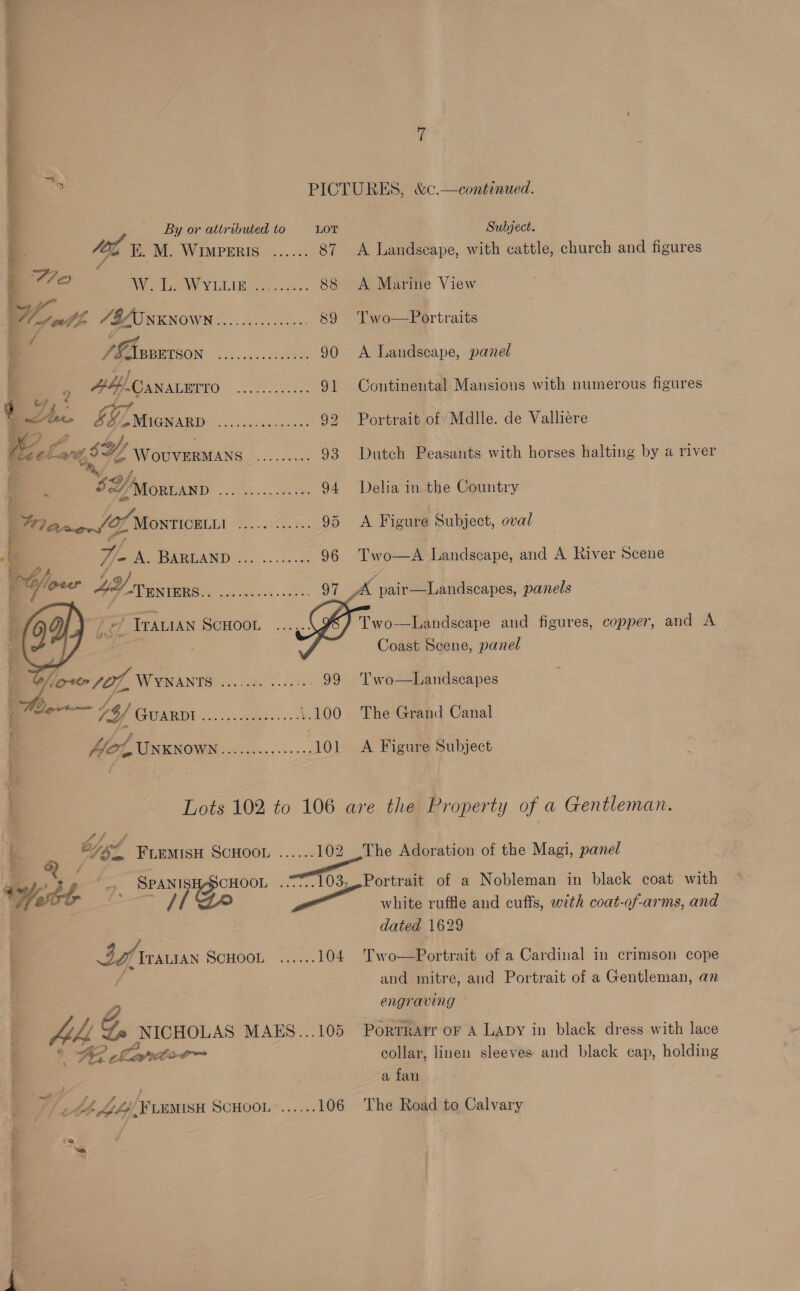 7
PICTURES, &c.—continued.
By or attributed to LOT Subject.
E. M. WIMPERIS ...... 87 A Landscape, with cattle, church and figures
W. L. WYLLIE .......... 88 A Marine View
UNKNOWN............... 89 Two—Portraits
IBBETSON ............... 90 A Landscape, panel
CANALETTO ............ 91 Continental Mansions with numerous figures
MIGNARD ............... 92 Portrait of Mdlle. de Vallière
WOUVERMANS ......... 93 Dutch Peasants with horses halting by a river
MORLAND ............... 94 Delia in the Country
MONTICELLI ............ 95 A Figure Subject, oval
A. BARLAND ............ 96 Two—A Landscape, and A River Scene
TENIERS.................. 97 A pair—Landscapes, panels
99 ITALIAN SCHOOL ...... Two—Landscape and figures, copper, and A
Coast Scene, panel
WYNANTS ............... 99 Two—Landscapes
GUARDI ..................100 The Grand Canal
UNKNOWN...............101 A Figure Subject
Lots 102 to 106 are the Property of a Gentleman.
FLEMISH SCHOOL ......102 The Adoration of the Magi, panel
SPANISH SCHOOL ......103 Portrait of a Nobleman in black coat with
white ruffle and cuffs, with coat-of-arms, and
dated 1629
ITALIAN SCHOOL ......104 Two—Portrait of a Cardinal in crimson cope
and mitre, and Portrait of a Gentleman, an
engraving
NICHOLAS MAES...105 PORTRAIT OF A LADY in black dress with lace
collar, linen sleeves and black cap, holding
a fan
FLEMISH SCHOOL ......106 The Road to Calvary